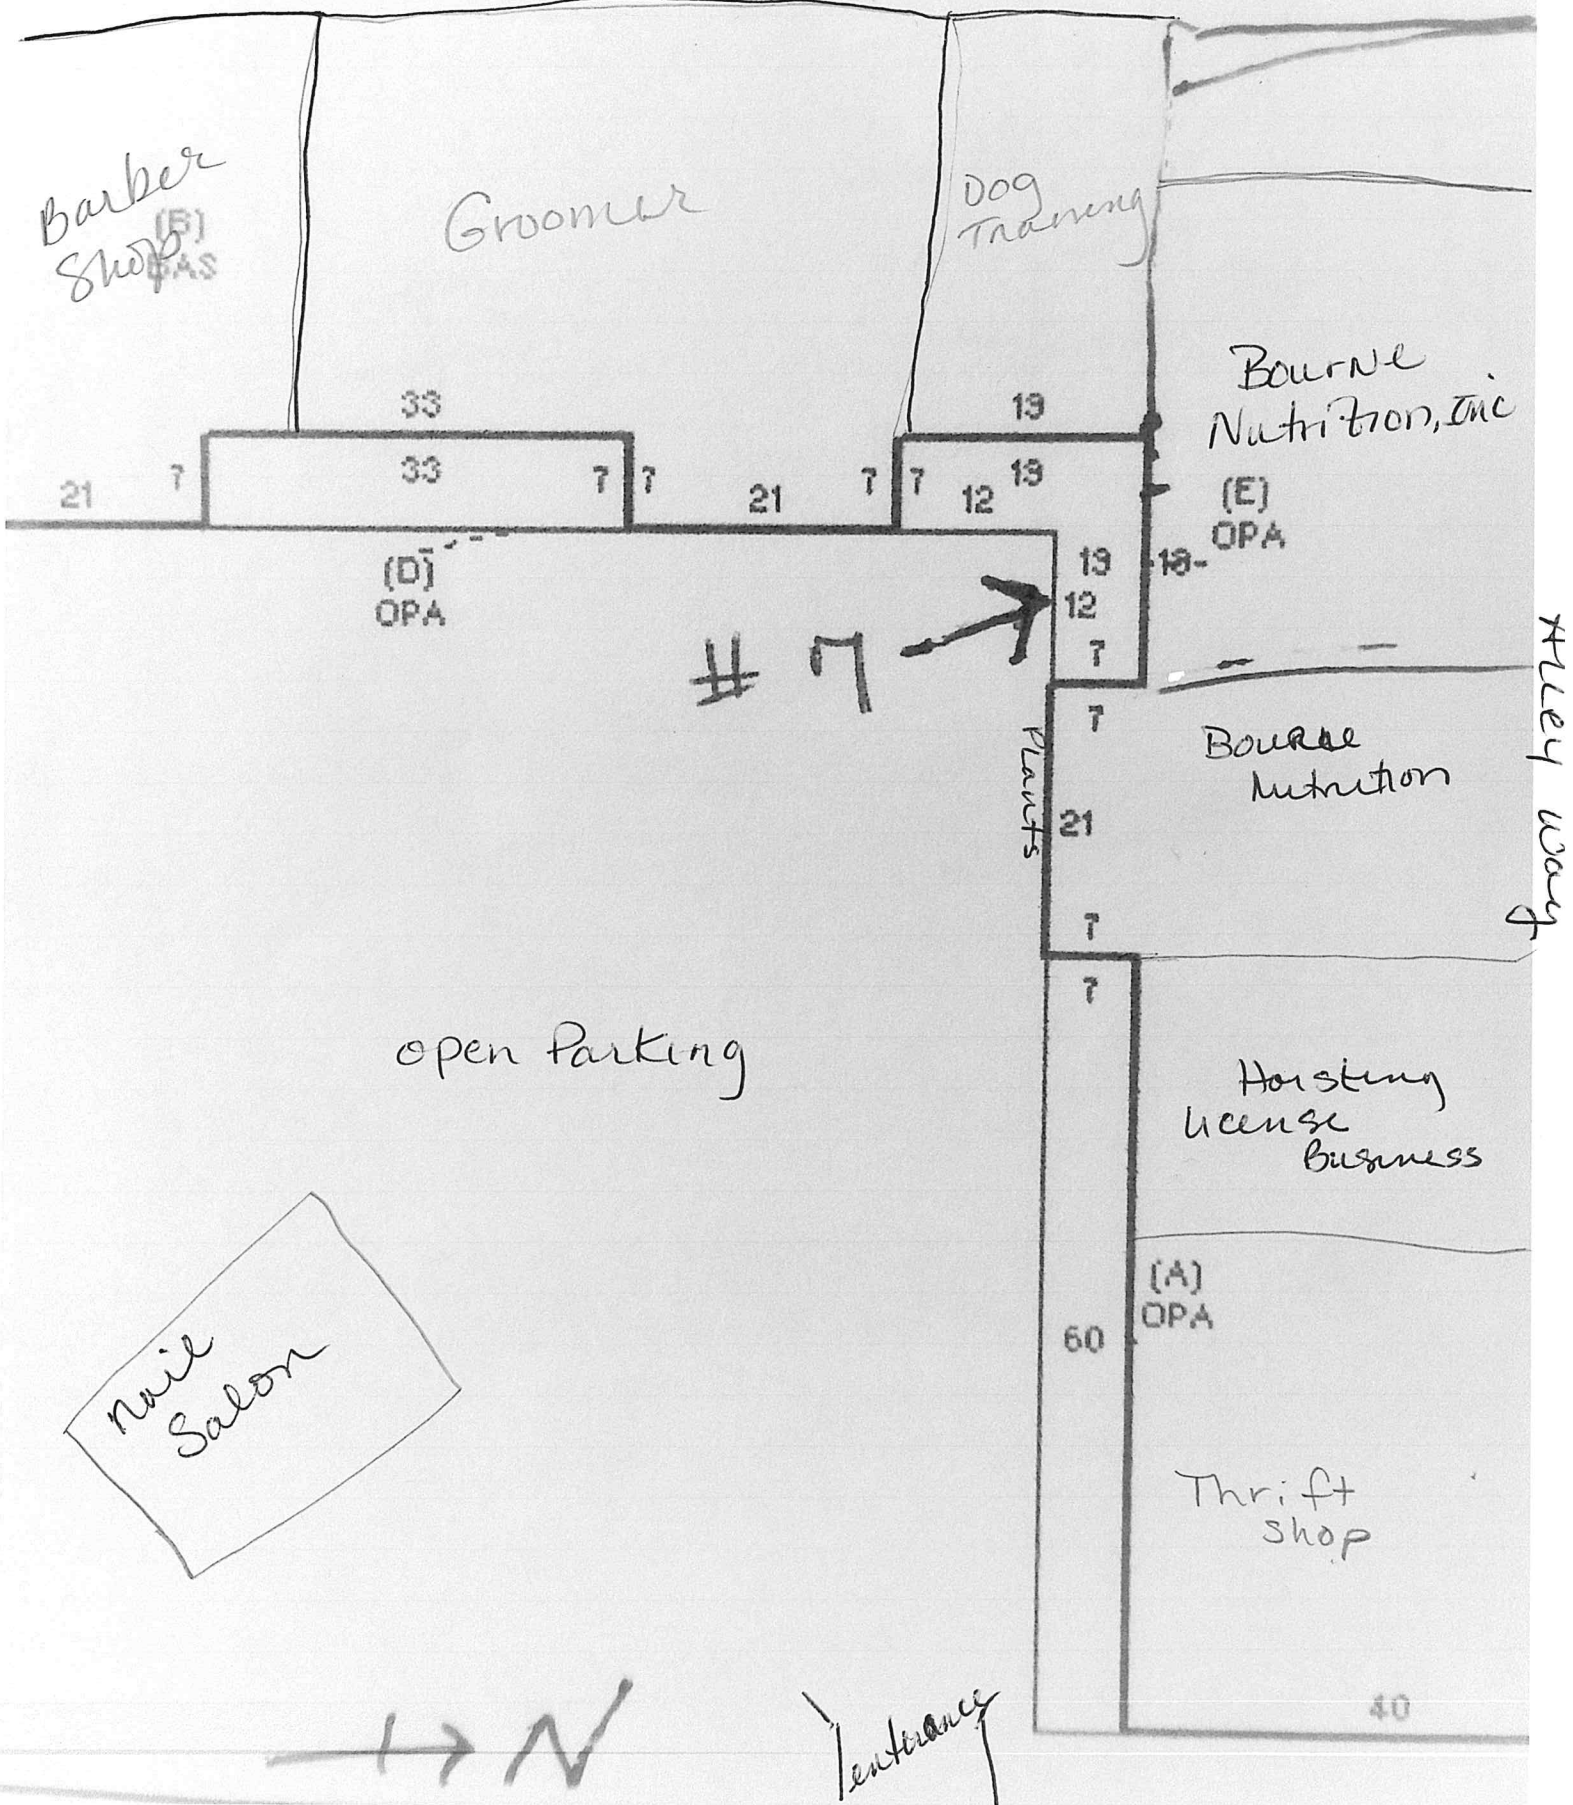 Barber
Shop
(B)
BAS
Groomer
Dog
Training
Bourne
Nutrition, Inc
(E)
OPA
33
19
21
7
33
7
7
21
7
7
12
19
(D)
OPA
19
18
12
7
# 7
7
Plants
21
7
Bourne
Nutrition
Alley way
7
open Parking
Hoisting
License
Business
(A)
OPA
60
nail
Salon
Thrift
shop
40
N